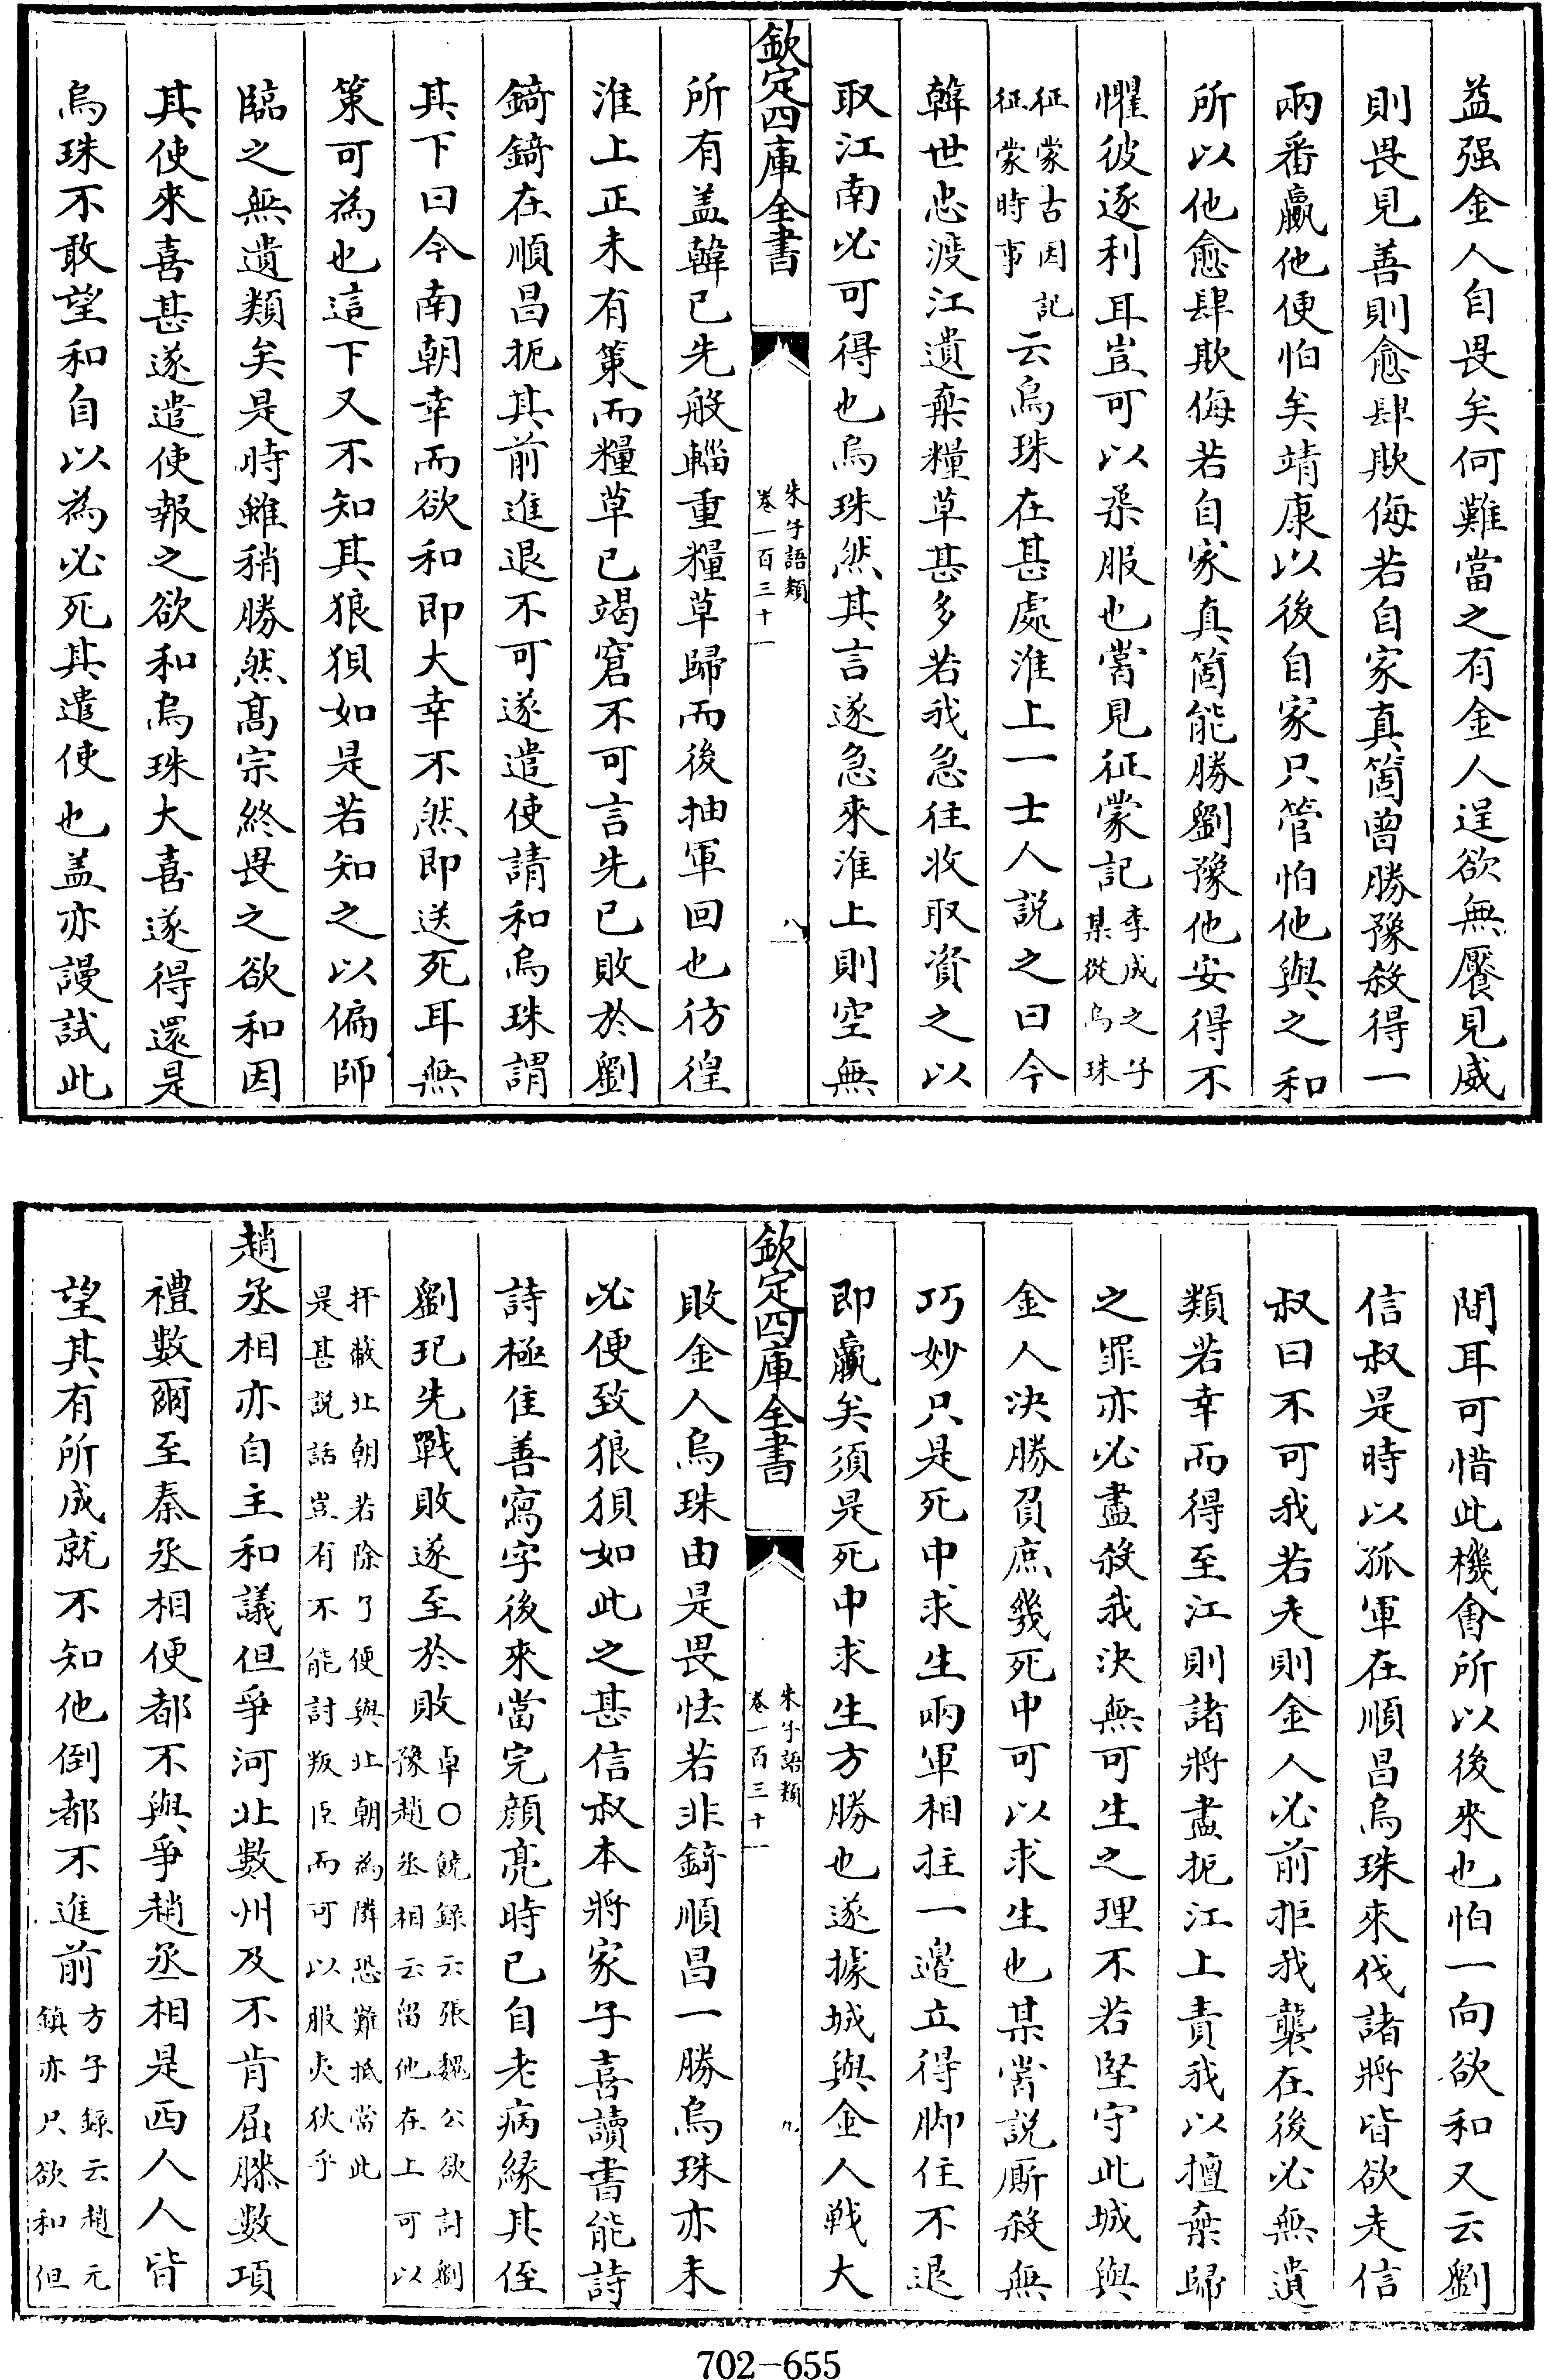 益强金人自畏矣何難當之有金人逞欲無厭見威
則畏見善則愈肆欺侮若自家真箇曾勝豫殺得一
兩番贏他便怕矣靖康以後自家只管怕他與之和
所以他愈肆欺侮若自家真箇能勝劉豫他安得不
懼彼逐利耳豈可以柔服也嘗見征蒙記李成之子某從烏珠
征蒙古因記征蒙時事云烏珠在甚處淮上一士人説之曰今
韓世忠渡江遺棄糧草甚多若我急往收取資之以
取江南必可得也烏珠然其言遂急來淮上則空無
欽定四庫全書
朱子語類
卷一百三十一
八
所有盖韓已先般輜重糧草歸而後抽軍回也彷徨
淮上正未有策而糧草已竭窘不可言先已敗於劉
錡錡在順昌扼其前進退不可遂遣使請和烏珠謂
其下曰今南朝幸而欲和即大幸不然即送死耳無
策可為也這下又不知其狼狽如是若知之以偏師
臨之無遺類矣是時雖稍勝然髙宗終畏之欲和因
其使來喜甚遂遣使報之欲和烏珠大喜遂得還是
烏珠不敢望和自以為必死其遣使也盖亦謾試此
間耳可惜此機會所以後來也怕一向欲和又云劉
信叔是時以孤軍在順昌烏珠來伐諸將皆欲走信
叔曰不可我若走則金人必前拒我襲在後必無遺
類若幸而得至江則諸將盡扼江上責我以擅棄歸
之罪亦必盡殺我決無可生之理不若堅守此城與
金人決勝負庶幾死中可以求生也某嘗説厮殺無
巧妙只是死中求生兩軍相拄一邉立得脚住不退
即贏矣須是死中求生方勝也遂據城與金人戰大
欽定四庫全書
朱子語類
卷一百三十一
九
敗金人烏珠由是畏怯若非錡順昌一勝烏珠亦未
必便致狼狽如此之甚信叔本將家子喜讀書能詩
詩極佳善寫字後來當完顔亮時已自老病縁其侄
劉玘先戰敗遂至於敗卓○饒録云張魏公欲討劉豫趙丞相云留他在上可以
扞蔽北朝若除了便與北朝為隣恐難抵當此是甚説話豈有不能討叛臣而可以服夷狄乎
趙丞相亦自主和議但爭河北數州及不肯屈膝數項
禮數爾至秦丞相便都不與爭趙丞相是西人人皆
望其有所成就不知他倒都不進前方子録云趙元鎮亦只欲和但
702-655